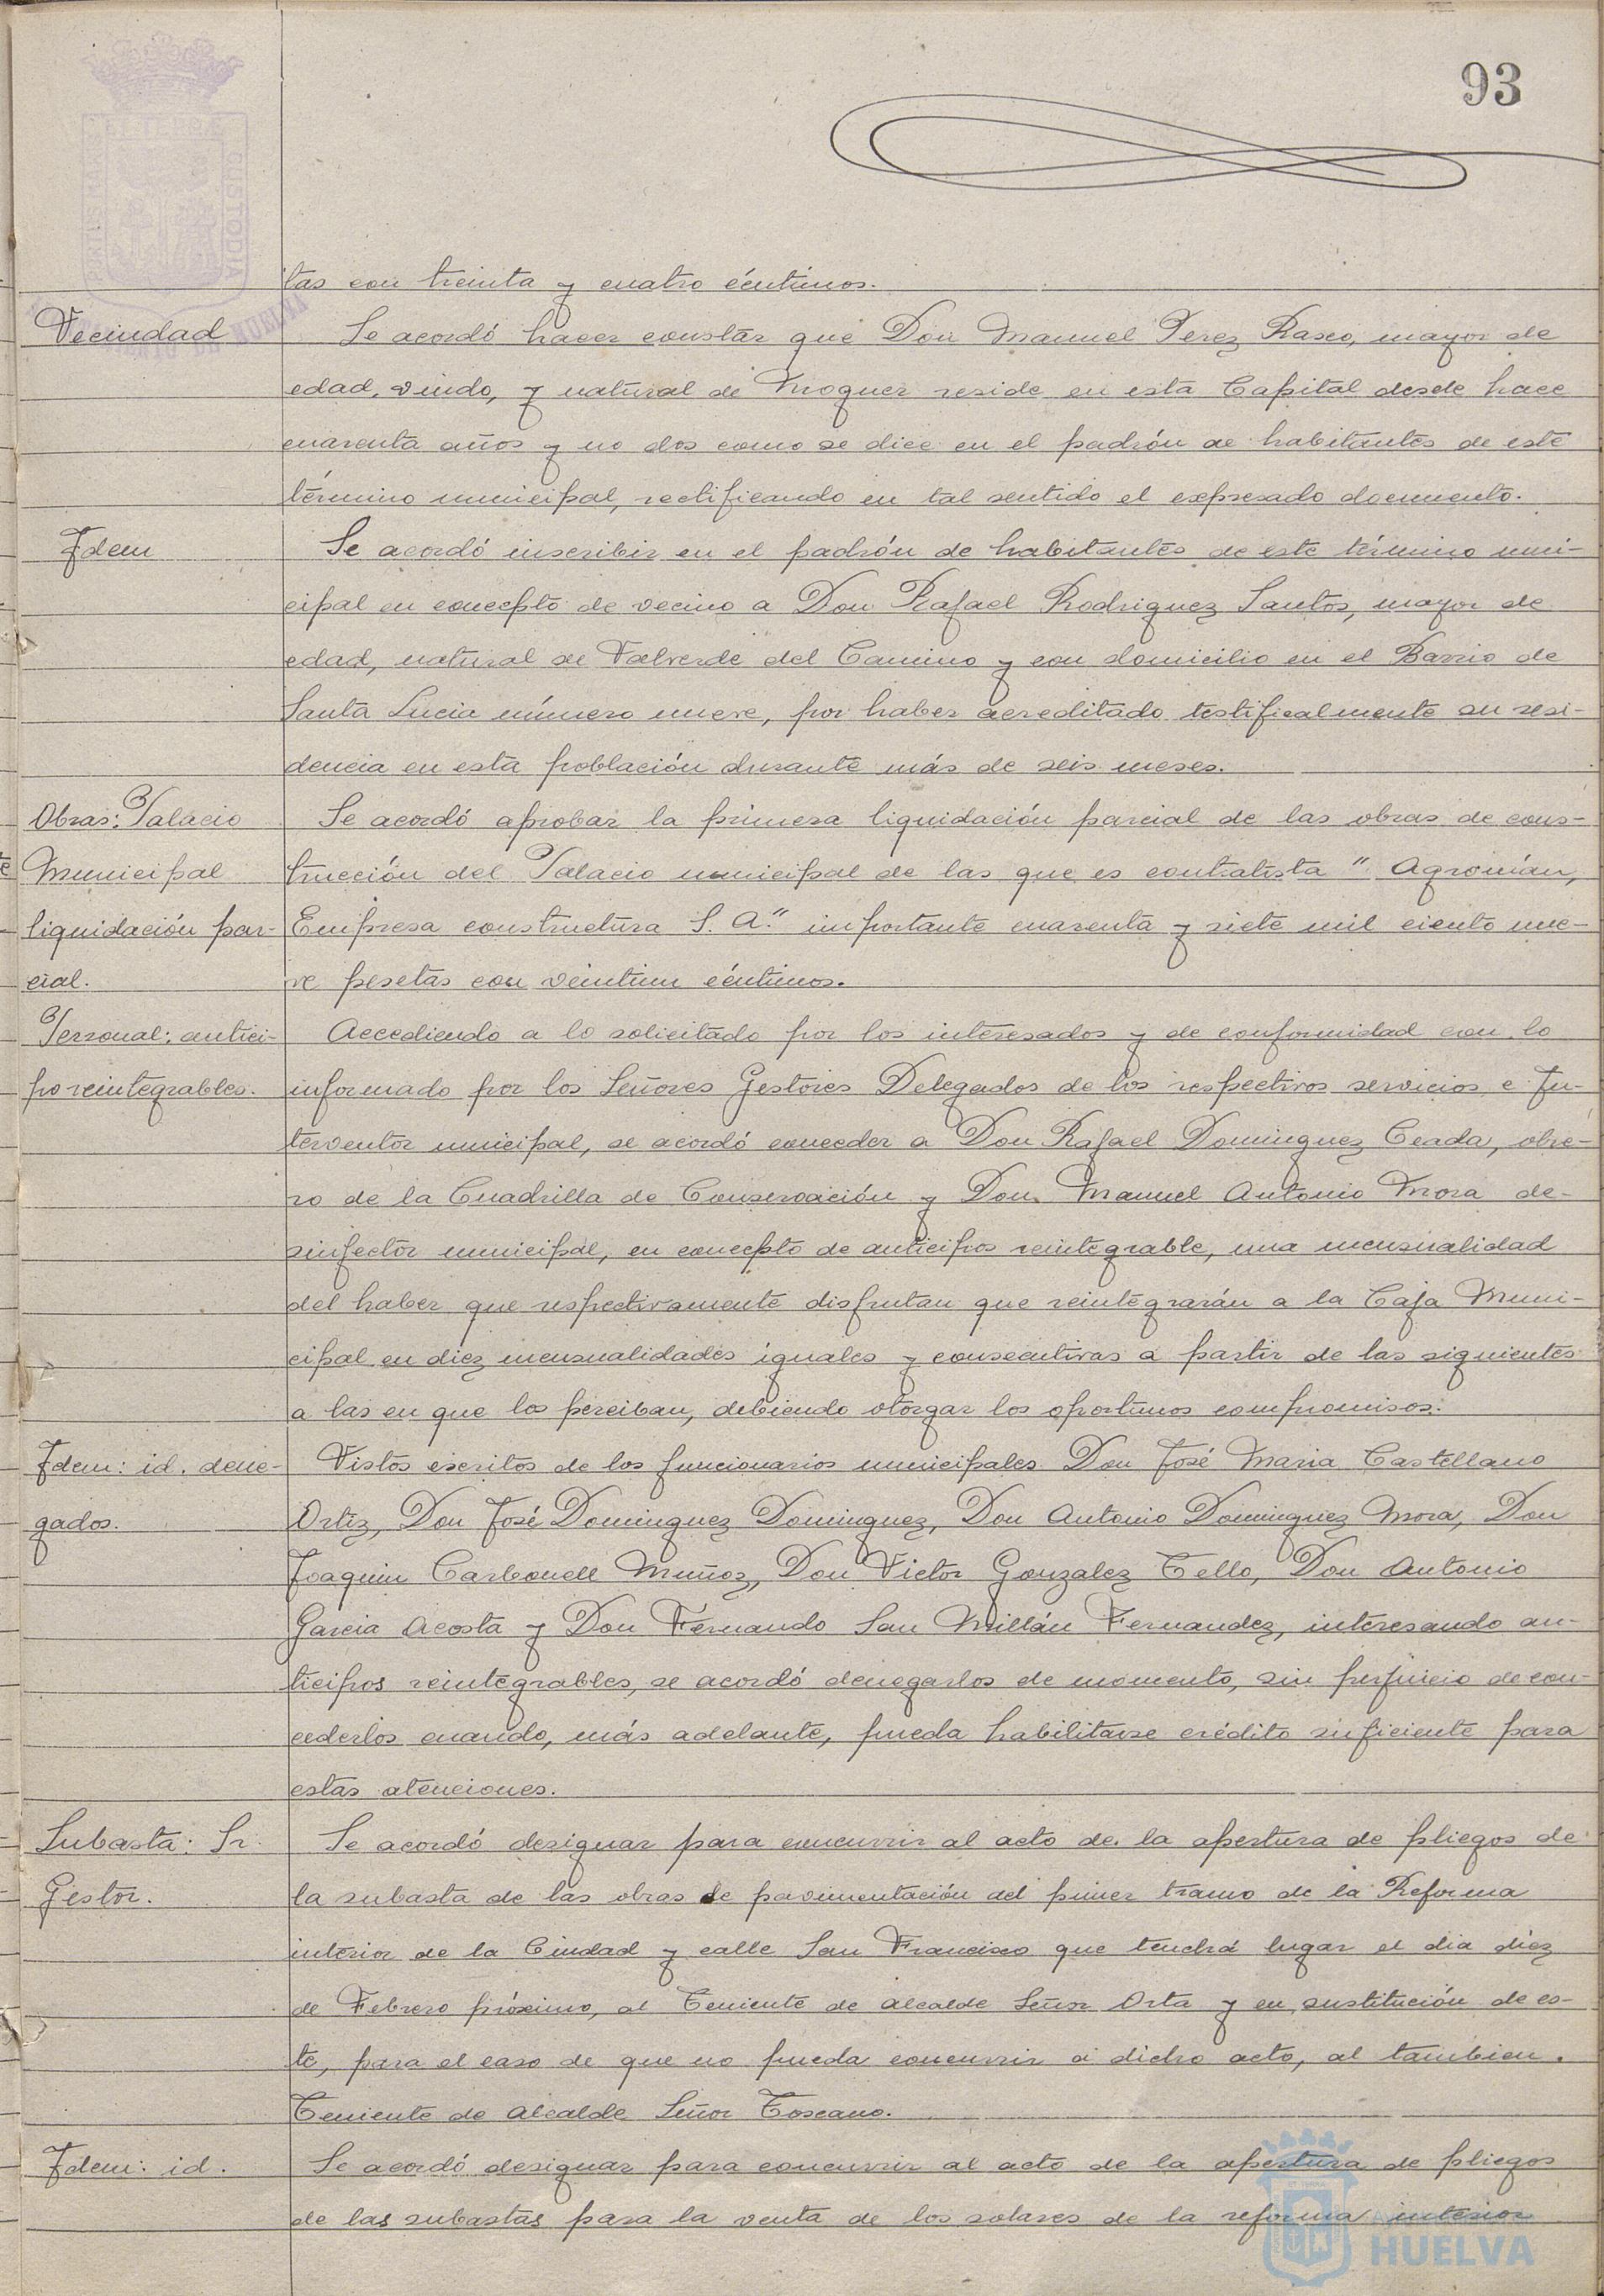 93
PORTUS MARIS ET TERRAE CUSTODIA
tas con treinta y cuatro céntimos.
Vecindad
Se acordó hacer constar que Don Manuel Perez Rasco, mayor de
edad, viudo, y natural de Moguer reside en esta Capital desde hace
cuarenta años y no dos como se dice en el padrón de habitantes de este
término municipal, rectificando en tal sentido el expresado documento.
Idem
Se acordó inscribir en el padrón de habitantes de este término muni-
cipal en concepto de vecino a Don Rafael Rodriguez Santos, mayor de
edad, natural de Valverde del Camino y con domicilio en el Barrio de
Santa Lucia número nueve, por haber acreditado testificalmente su resi-
dencia en esta población durante más de seis meses.
Obras: Palacio
Municipal
liquidación par-
cial.
Se acordó aprobar la primera liquidación parcial de las obras de cons-
trucción del Palacio municipal de las que es contratista "Agromán,
Empresa constructura S. A." importante cuarenta y siete mil ciento nue-
ve pesetas con veintiun céntimos.
Personal: antici-
po reintegrables.
Accediendo a lo solicitado por los interesados y de conformidad con lo
informado por los Señores Gestores Delegados de los respectivos servicios e In-
terventor municipal, se acordó conceder a Don Rafael Dominguez Ceada, obre-
ro de la Cuadrilla de Conservación y Don Manuel Antonio Mora de-
sinfector municipal, en concepto de anticipos reintegrable, una mensualidad
del haber que respectivamente disfrutan que reintegrarán a la Caja Muni-
cipal en diez mensualidades iguales y consecutivas a partir de las siguientes
a las en que los perciban, debiendo otorgar los oportunos compromisos.
Idem: id. dene-
gados.
Vistos escritos de los funcionarios municipales Don José Maria Castellano
Ortiz, Don José Dominguez Dominguez, Don Antonio Dominguez Mora, Don
Joaquin Carbonell Muñoz, Don Victor Gonzalez Tello, Don Antonio
Garcia Acosta y Don Fernando San Millán Fernandez, interesando an-
ticipos reintegrables, se acordó denegarlos de momento, sin perjuicio de con-
cederlos cuando, más adelante, pueda habilitarse crédito suficiente para
estas atenciones.
Subasta: Sr.
Gestor.
Se acordó designar para concurrir al acto de la apertura de pliegos de
la subasta de las obras de pavimentación del primer tramo de la Reforma
interior de la Ciudad y calle San Francisco que tendrá lugar el dia diez
de Febrero próximo, al Teniente de Alcalde Señor Orta y en sustitución de es-
te, para el caso de que no pueda concurrir a dicho acto, al tambien
Teniente de Alcalde Señor Toscano.
Idem: id.
Se acordó designar para concurrir al acto de la apertura de pliegos
de las subastas para la venta de los solares de la reforma interior
HUELVA